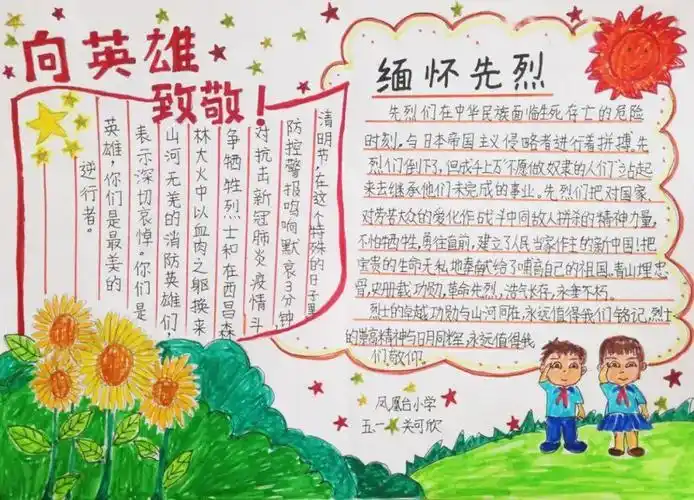 向英雄
致敬！
清明节，在这个特殊的日子里
防控警报鸣响默哀3分钟，
对抗击新冠肺炎疫情斗
争牺牲烈士和在西昌森
林大火中以血肉之躯换来
山河无羌的消防英雄们
表示深切哀悼。你们是
英雄，你们是最美的
逆行者。
缅怀先烈
先烈们在中华民族面临生死存亡的危险
时刻，与日本帝国主义侵略者进行着拼搏，先
烈们倒下了，但成千上万"不愿做奴隶的人们"站起
来去继承他们未完成的事业。先烈们把对国家，
对劳苦大众的爱化作战斗中同敌人拼杀的精神力量，
不怕牺牲，勇往直前，建立了人民当家作主的新中国！把
宝贵的生命无私地奉献给了哺育自己的祖国。青山埋忠
骨，史册载功勋，革命先烈，浩气长存，永垂不朽。
烈士的卓越功勋与山河同在，永远值得我们铭记，烈士
的崇高精神与日月同辉，永远值得我
们敬仰。
凤凰台小学
五一 关可欣